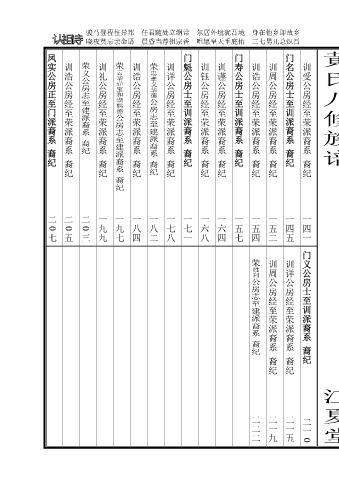 黄氏八修族谱
江夏堂
认祖诗
骏马登程往异邦 任从随处立纲常
晓夜莫忘亲命语 晨昏当荐祖宗香
身在他乡即故乡
二七男儿总炽昌
训受公房经至荣派裔系 裔纪 四一
门名公房士至训派裔系 裔纪 四五
训周公房经至荣派裔系 裔纪 五二
训诰公房经至荣派裔系 裔纪 五四
门寿公房士至训派裔系 裔纪 五七
训谨公房经至荣派裔系 裔纪 六四
训钰公房经至荣派裔系 裔纪 六八
门魁公房士至训派裔系 裔纪 七一
训详公房经至荣派裔系 裔纪 七八
公房志至建派裔系 裔纪 八二
训浩公房经至荣派裔系 裔纪 八四
公房志至建派裔系 裔纪 九七
训礼公房经至荣派裔系 裔纪 九九
荣义公房志至建派裔系 裔纪 二〇三
训浩公房经至荣派裔系 裔纪 二〇五
凤实公房正至门派裔系 裔纪 二〇七
门义公房士至训派裔系 裔纪 二一〇
训详公房经至荣派裔系 裔纪 二一五
训周公房经至荣派裔系 裔纪 二一九
公房志至建派裔系 裔纪 二二二